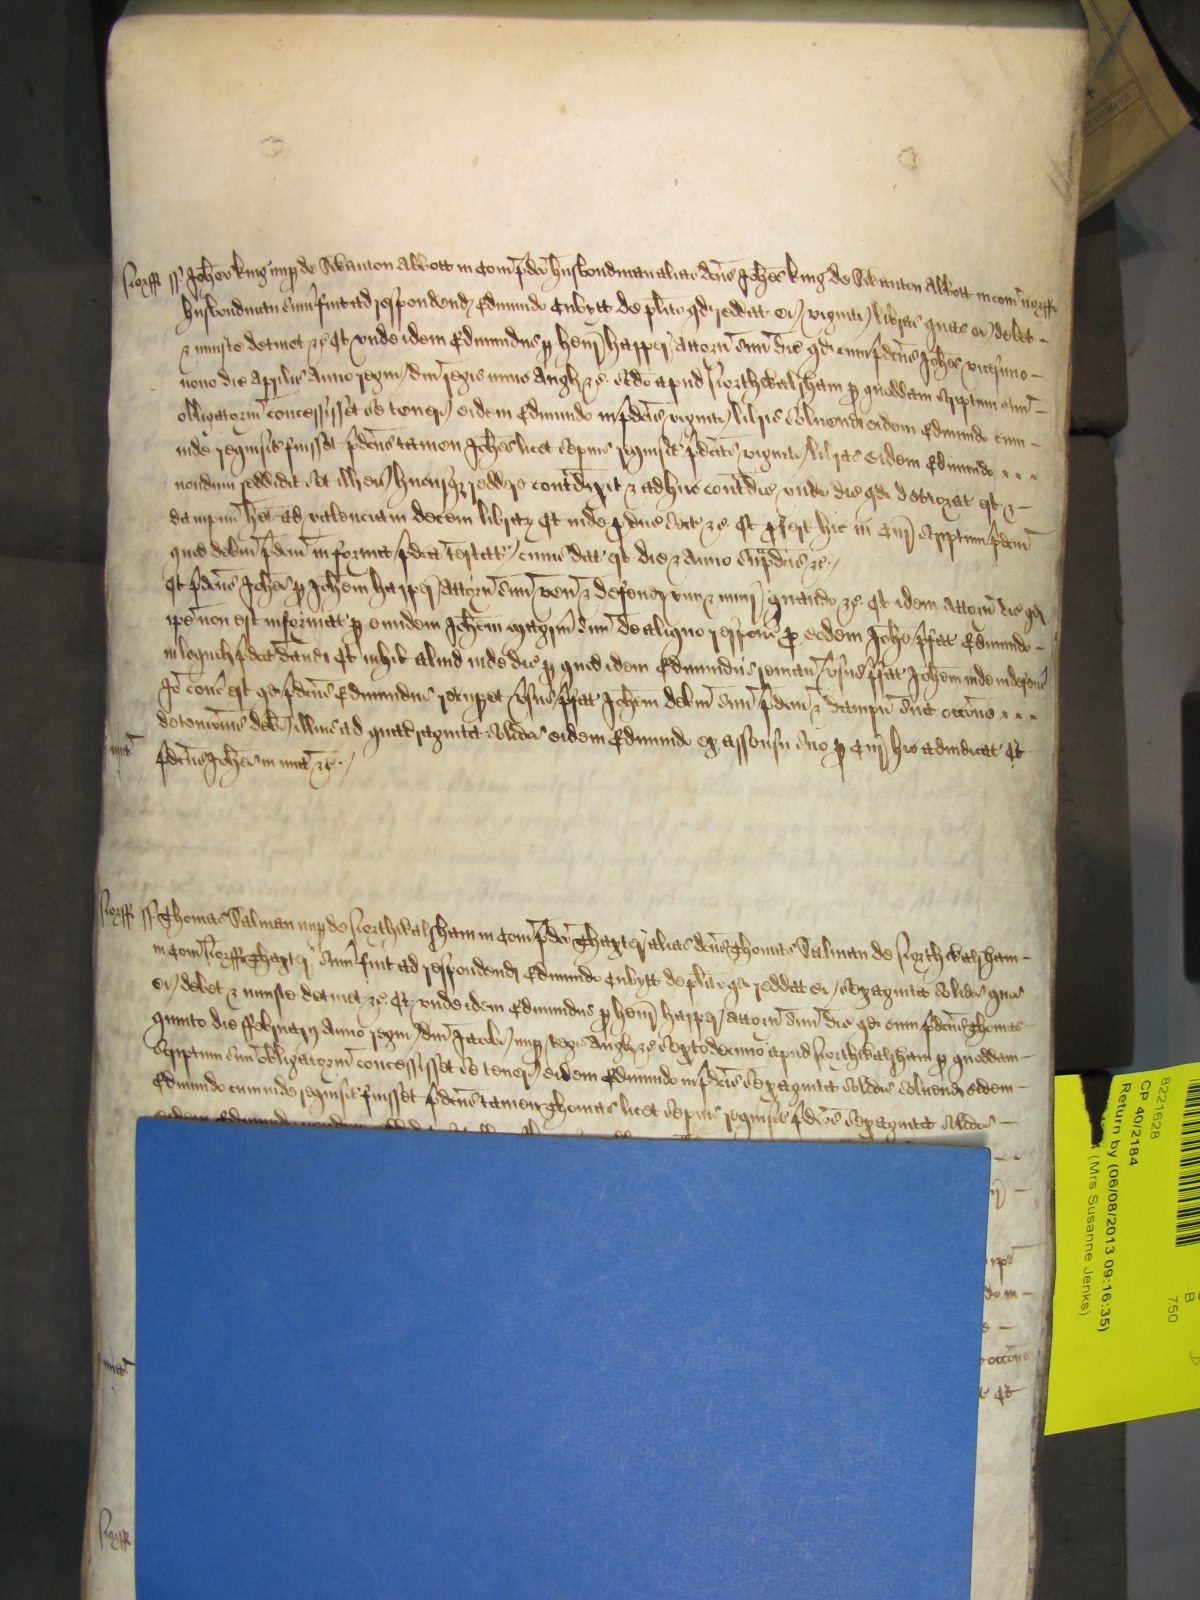 Norff ss Johes King nup de Swanton Abbott in Com pdco husbondman alias dcus Johes King de Swanton Abbott in com Norff
husbondman sum fuit ad respondend Edmundo Cubytt de plito qd reddat ei viginti libras quas ei debet
& iniuste detinet &c Et unde idem Edmundus p Henr Harper attorn suu dic qd cum pdcus Johes vicesimo
nono die Aprilis Anno regni dni Regis nunc Angl &c scdo apud Northwalsham p quoddam scriptum suu
obligatorium concessisset se teneri eidem Edmundo in pdcis viginti libris solvend eidem Edmundo cum
inde requisit fuisset pdcus tamen Johes licet sepius requisit pdcas viginti libras eidem Edmundo
nondum reddidit set ill ei hucusqz reddere contradixit & adhuc contradic unde dic qd deteriorat est &
dampnu het ad valenciam decem librar Et inde pduc sect &c Et pfert hic in Cur scriptum pdcm
quod debitu pdcm in forma pdca testat cuius dat est die & anno supradcis &c
Et pdcus Johes p Johem Harper attorn suu ven & defend vim & iniur quando &c Et idem attorn dic qd
ipe non est informat p eundem Johem magrm suu de aliquo respons p eodem Johe pfat Edmundo
in loquela pdca dand Et nichil aliud inde dic p quod idem Edmundus remanet vsus pfat Johem inde indefens
Io cons est qd pdcus Edmundus recuperet vsus pfat Johem debitu suu pdcm & dampna sua occone
detencionis debi illius ad quadraginta solidos eidem Edmundo ex assensu suo p Cur hic adiudicat Et
mia pdcus Johes in mia &c
Norff ss Thomas Salman nup de Northwalsham in Com pdco Thaxter alias dcus Thomas Salman de Northwalsham
in Com Norff Thaxter sum fuit ad respondend Edmundo Cubytt de plito qd reddat ei sexaginta solidos quos
ei debet & iniuste detinet &c Et unde idem Edmundus p Henr Harper attorn suu dic qd cum pdcus Thomas
quinto die Februarij Anno regni dni Jacobi nup Regis Angl &c sextodecimo apud Northwalsham p quoddam
scriptum suu obligatorium concessisset se teneri eidem Edmundo in pdcis sexaginta solidis solvend eidem
Edmundo cum inde requisit fuisset pdcus tamen Thomas licet sepius requisit pdcos sexaginta solidos
eidem Edmundo
ipe
occone
Et
mia
Norff
8221628
CP 40/2184
Return by (06/08/2013 09:16:35)
(Mrs Susanne Jenks)
B
750